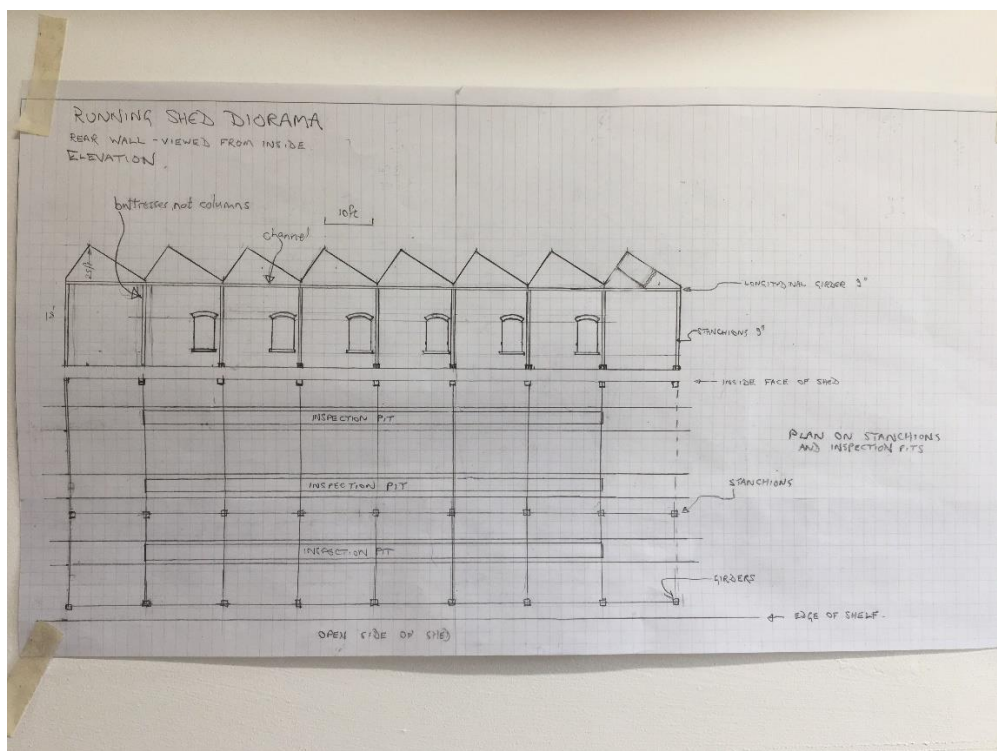 RUNNING SHED DIORAMA
REAR WALL - VIEWED FROM INSIDE
ELEVATION
buttresses, not columns
10ft
channel
25ft
LONGITUDINAL GIRDER 9"
STANCHIONS 9"
INSIDE FACE OF SHED
INSPECTION PIT
PLAN ON STANCHIONS
AND INSPECTION PITS
INSPECTION PIT
STANCHIONS
INSPECTION PIT
GIRDERS
EDGE OF SHELF.
OPEN SIDE ON SHED